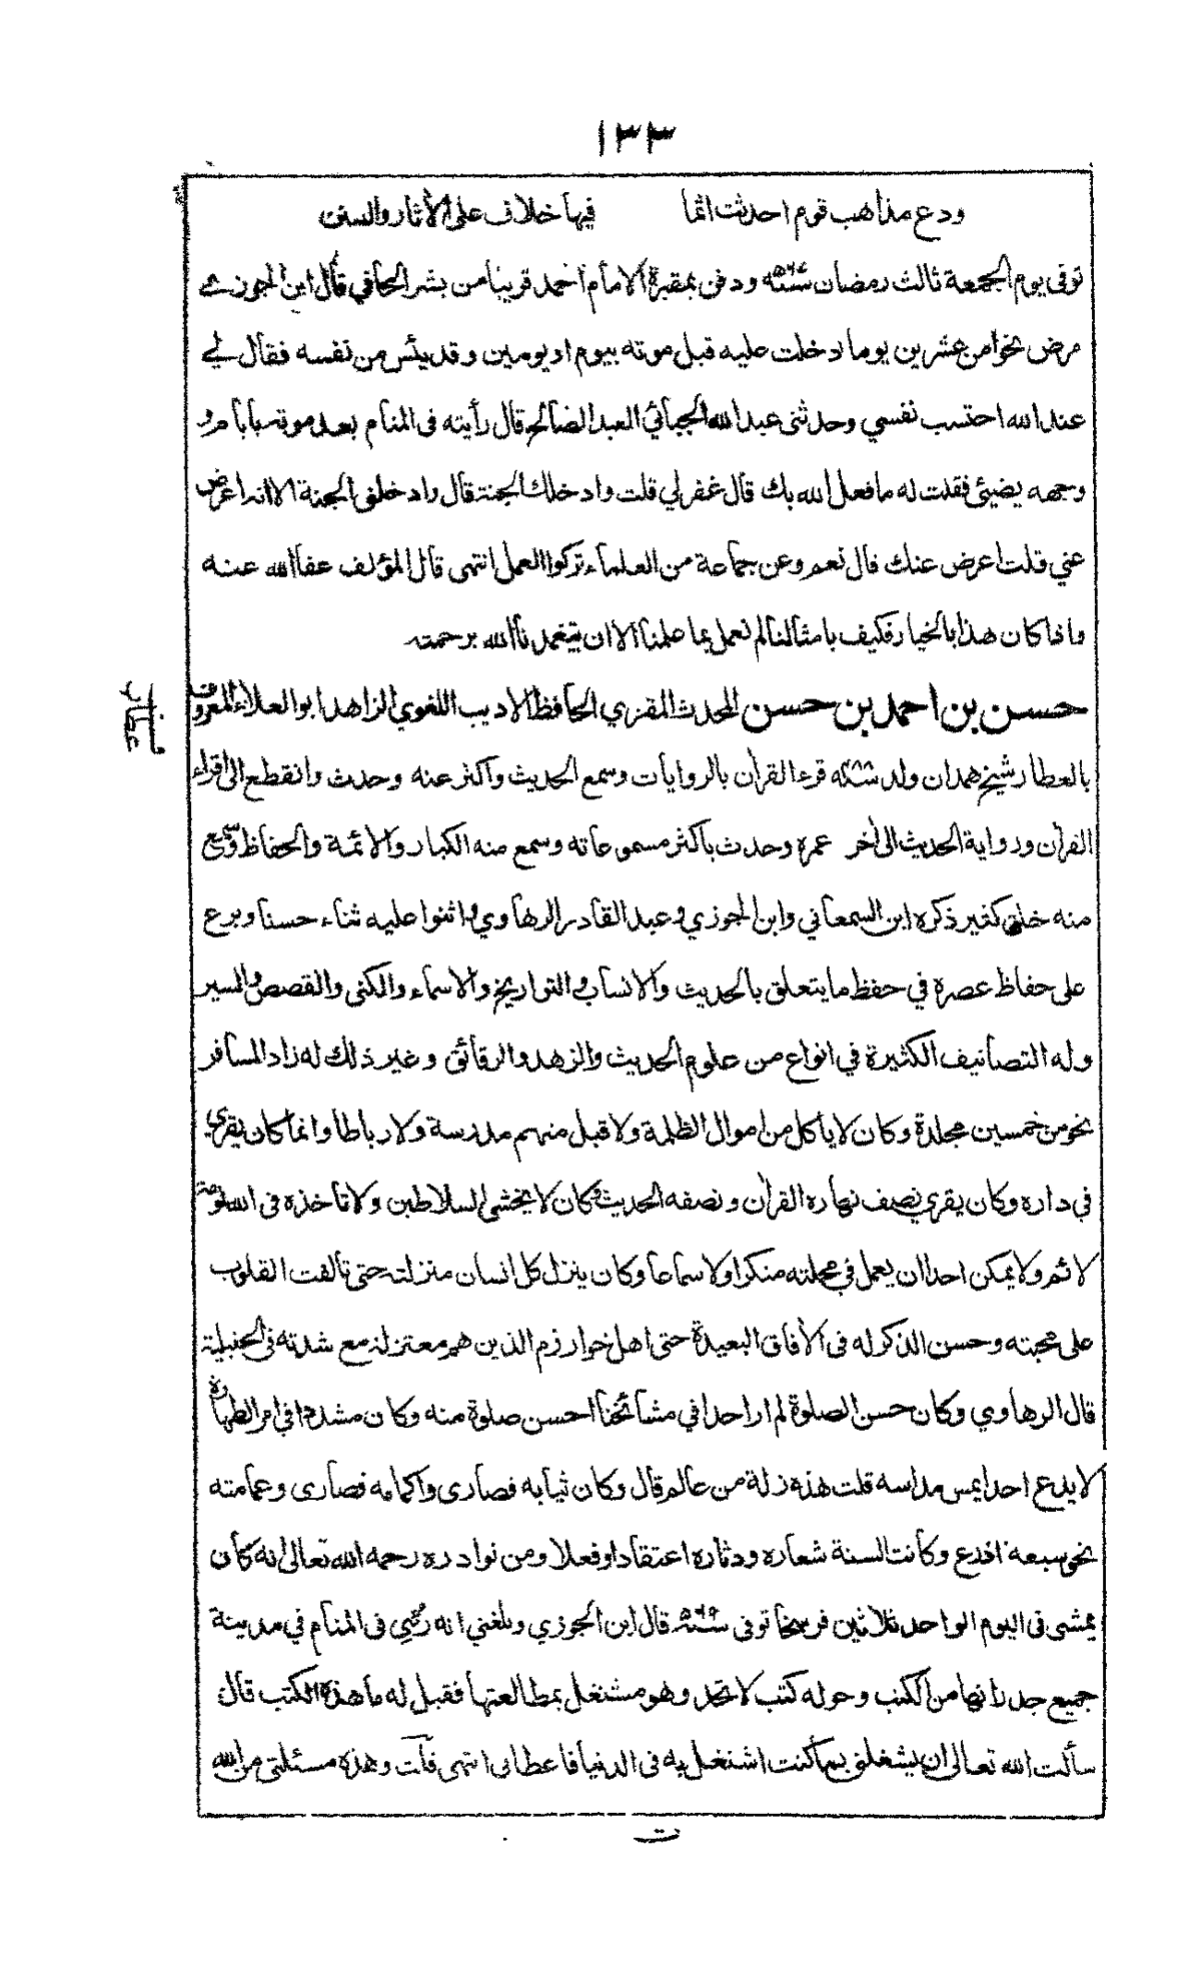 ١٣٣
ودع مذاهب قوم احدثت اثما فيها خلاف على الأثار والسنن
توفى يوم الجمعة ثالث رمضان سنة ودفن بمقبرة الامام احمد قريبا من بشر الحافي قال ابن الجوزي
مرض نحوا من عشرين يوما دخلت عليه قبل موته بيوم او يومين وقد يئس من نفسه فقال لي
عند الله احتسب نفسي وحدثنى عبد الله الجبائي العبد الصالح قال رأيته فى المنام بعد موته
وجهه يضيئ فقلت له ما فعل الله بك قال غفر لي قلت وادخلك الجنة قال وادخلنى الجنة الا انه اعرض
عني قلت اعرض عنك قال نعم وعن جماعة من العلماء تركوا العمل انتهى قال المؤلف عفا الله عنه
واذا كان هذا بالخيار فكيف بامثالنا لم نعمل بما علمنا الا ان يتغمدنا الله برحمته
حسن بن احمد بن حسن المحدث المقري الحافظ الاديب اللغوي الزاهد ابو العلاء المعروف
عطار
بالعطار شيخ همدان ولد سنة ٤٨٨ قرء القرأن بالروايات وسمع الحديث واكثر عنه وحدث وانقطع الى اقراء
القرأن ورواية الحديث الى أخر عمره وحدث باكثر مسموعاته وسمع منه الكبار والائمة والحفاظ وسمع
منه خلق كثير ذكره ابن السمعاني وابن الجوزي وعبد القادر الرهاوي واثنوا عليه ثناء حسنا وبرع
على حفاظ عصره في حفظ ما يتعلق بالحديث والانساب والتواريخ والاسماء والكنى والقصص والسير
وله التصانيف الكثيرة في انواع من علوم الحديث والزهد والرقائق وغير ذلك له زاد المسافر
نحو من خمسين مجلدة وكان لا يأكل من اموال الظلمة ولا قبل منهم مدرسة ولا رباطا وانما كان يقري
في داره وكان يقري نصف نهاره القرأن ونصفه الحديث وكان لا يخشى السلاطين ولا تاخذه فى الله لومة
لائم ولا يمكن احدا ان يعمل في محلته منكرا ولا سماعا وكان ينزل كل انسان منزلته حتى تالفت القلوب
على محبته وحسن الذكر له فى الأفاق البعيدة حتى اهل خوارزم الذين هم معتزلة مع شدته فى الحنبلية
قال الرهاوي وكان حسن الصلوة لم ار احدا في مشائخنا احسن صلوة منه وكان مشددا في امر الطهارة
لا يدع احدا يمس مداسه قلت هذه زلة من عالم قال وكان ثيابه قصارى واكمامه قصارى وعمامته
نحو سبعة اذرع وكانت السنة شعاره ودثاره اعتقادا وفعلا ومن نوادره رحمه الله تعالى انه كان
يمشى فى اليوم الواحد ثلاثين فرسخا توفى سنة ٥٦٩ قال ابن الجوزي وبلغني انه رُئِي فى المنام في مدينة
جميع جدرانها من الكتب وحوله كتب لا تحد وهو مشتغل بمطالعتها فقيل له ما هذه الكتب قال
سألت الله تعالى ان يشغلني بما كنت اشتغل به فى الدنيا فاعطانى انتهى قلت وهذه مسئلتى من الله
ت